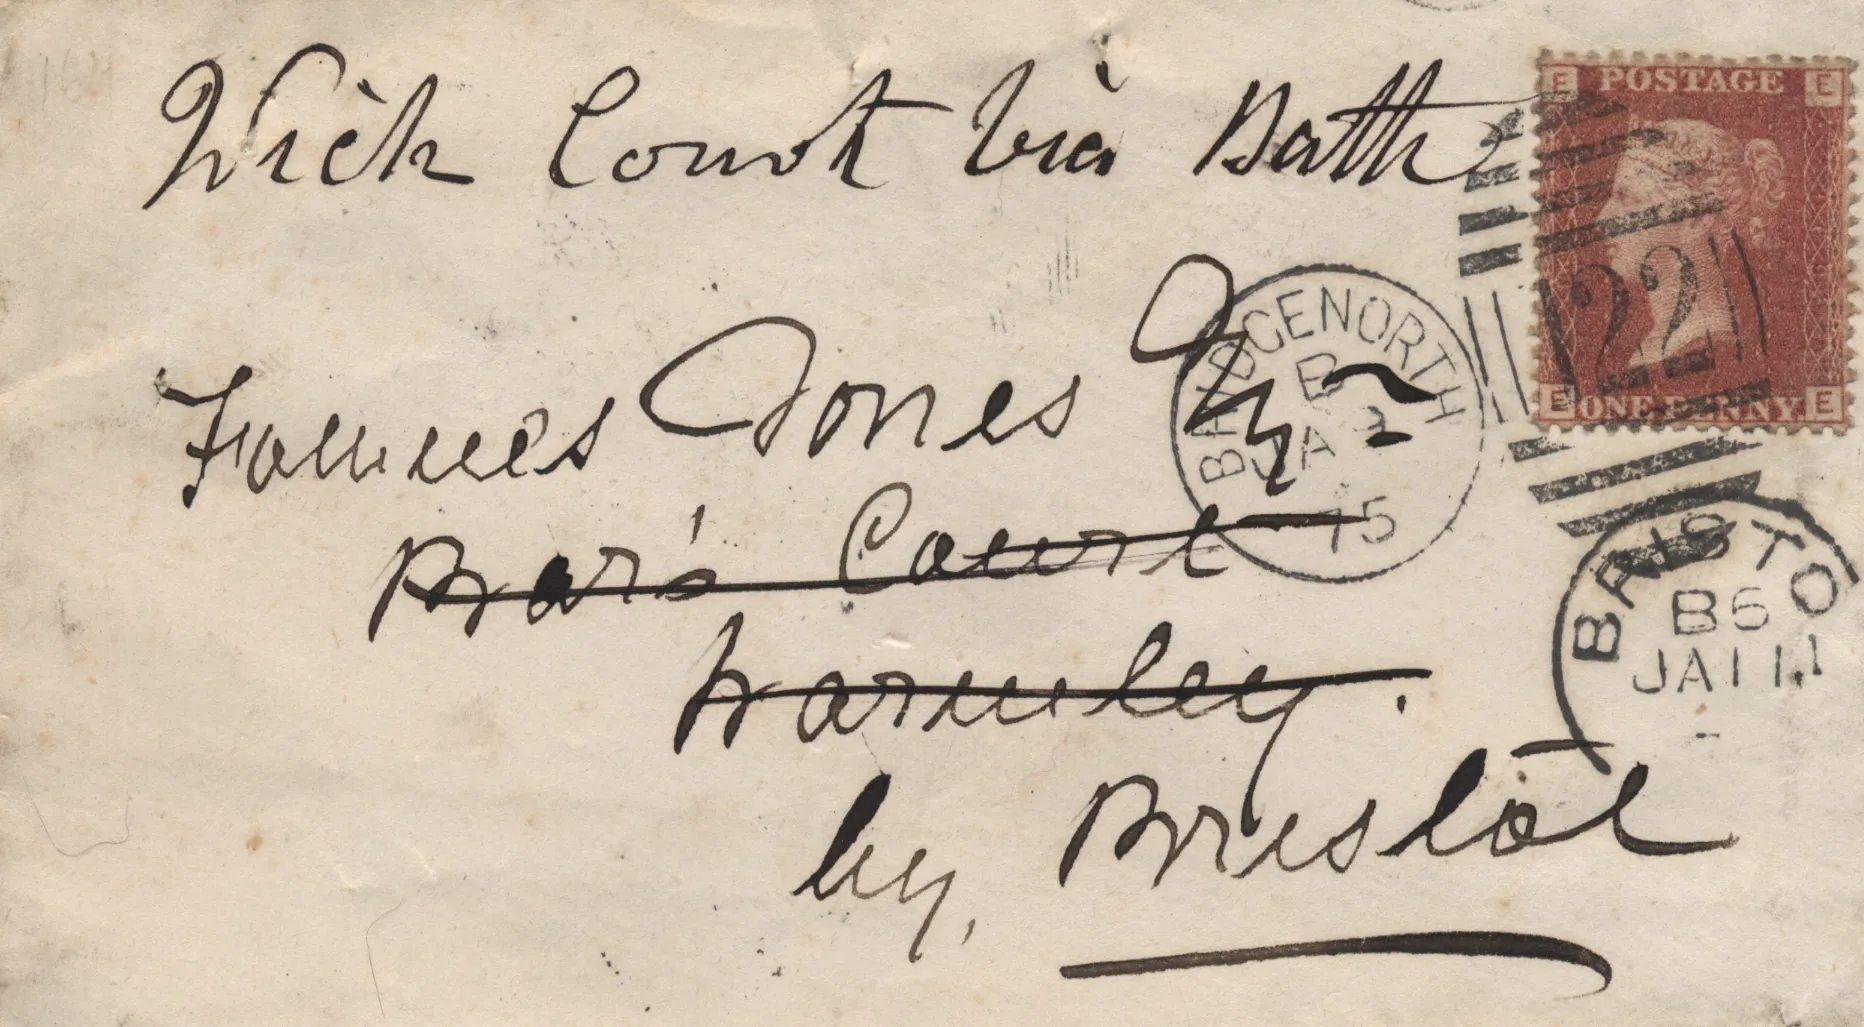 Wick Court via Bath
James Jones Esq
Bar's Court
Warmley.
by, Bristol
E POSTAGE E
22
E ONE PENNY E
BRIDGENORTH
B
JA
75
BRISTO
B6
JA 11